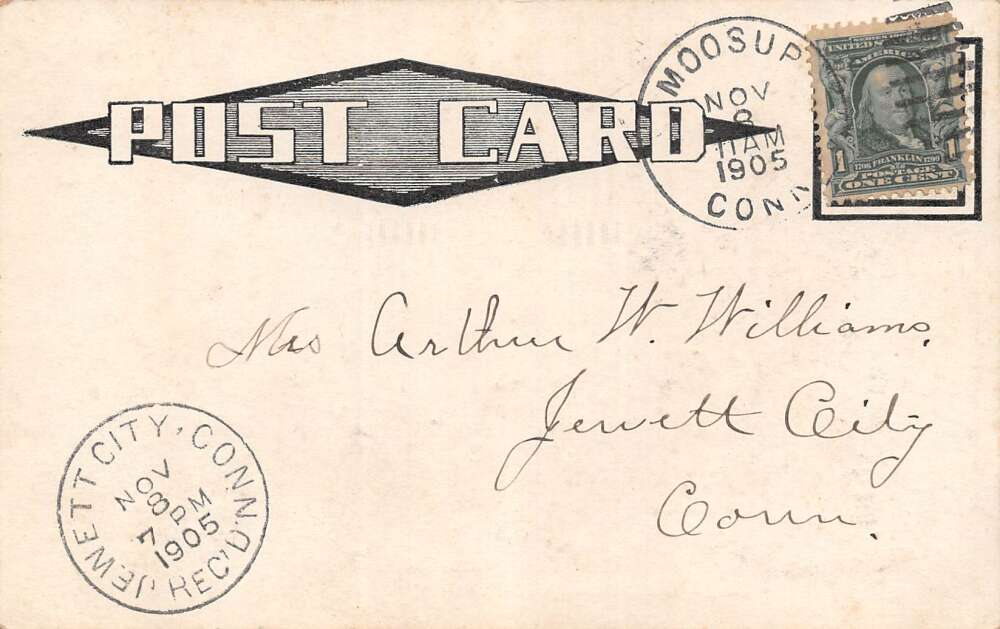 POST CARD
MOOSUP
NOV
8
11 AM
1905
CONN
SERIES 1902
UNITED STATES
AMERICA
1 1706 FRANKLIN 1790 1
POSTAGE
ONE CENT
Mrs Arthur W. Williams,
Jewett City
Conn.
JEWETT CITY, CONN.
NOV
8
7 PM
1905
REC'D.